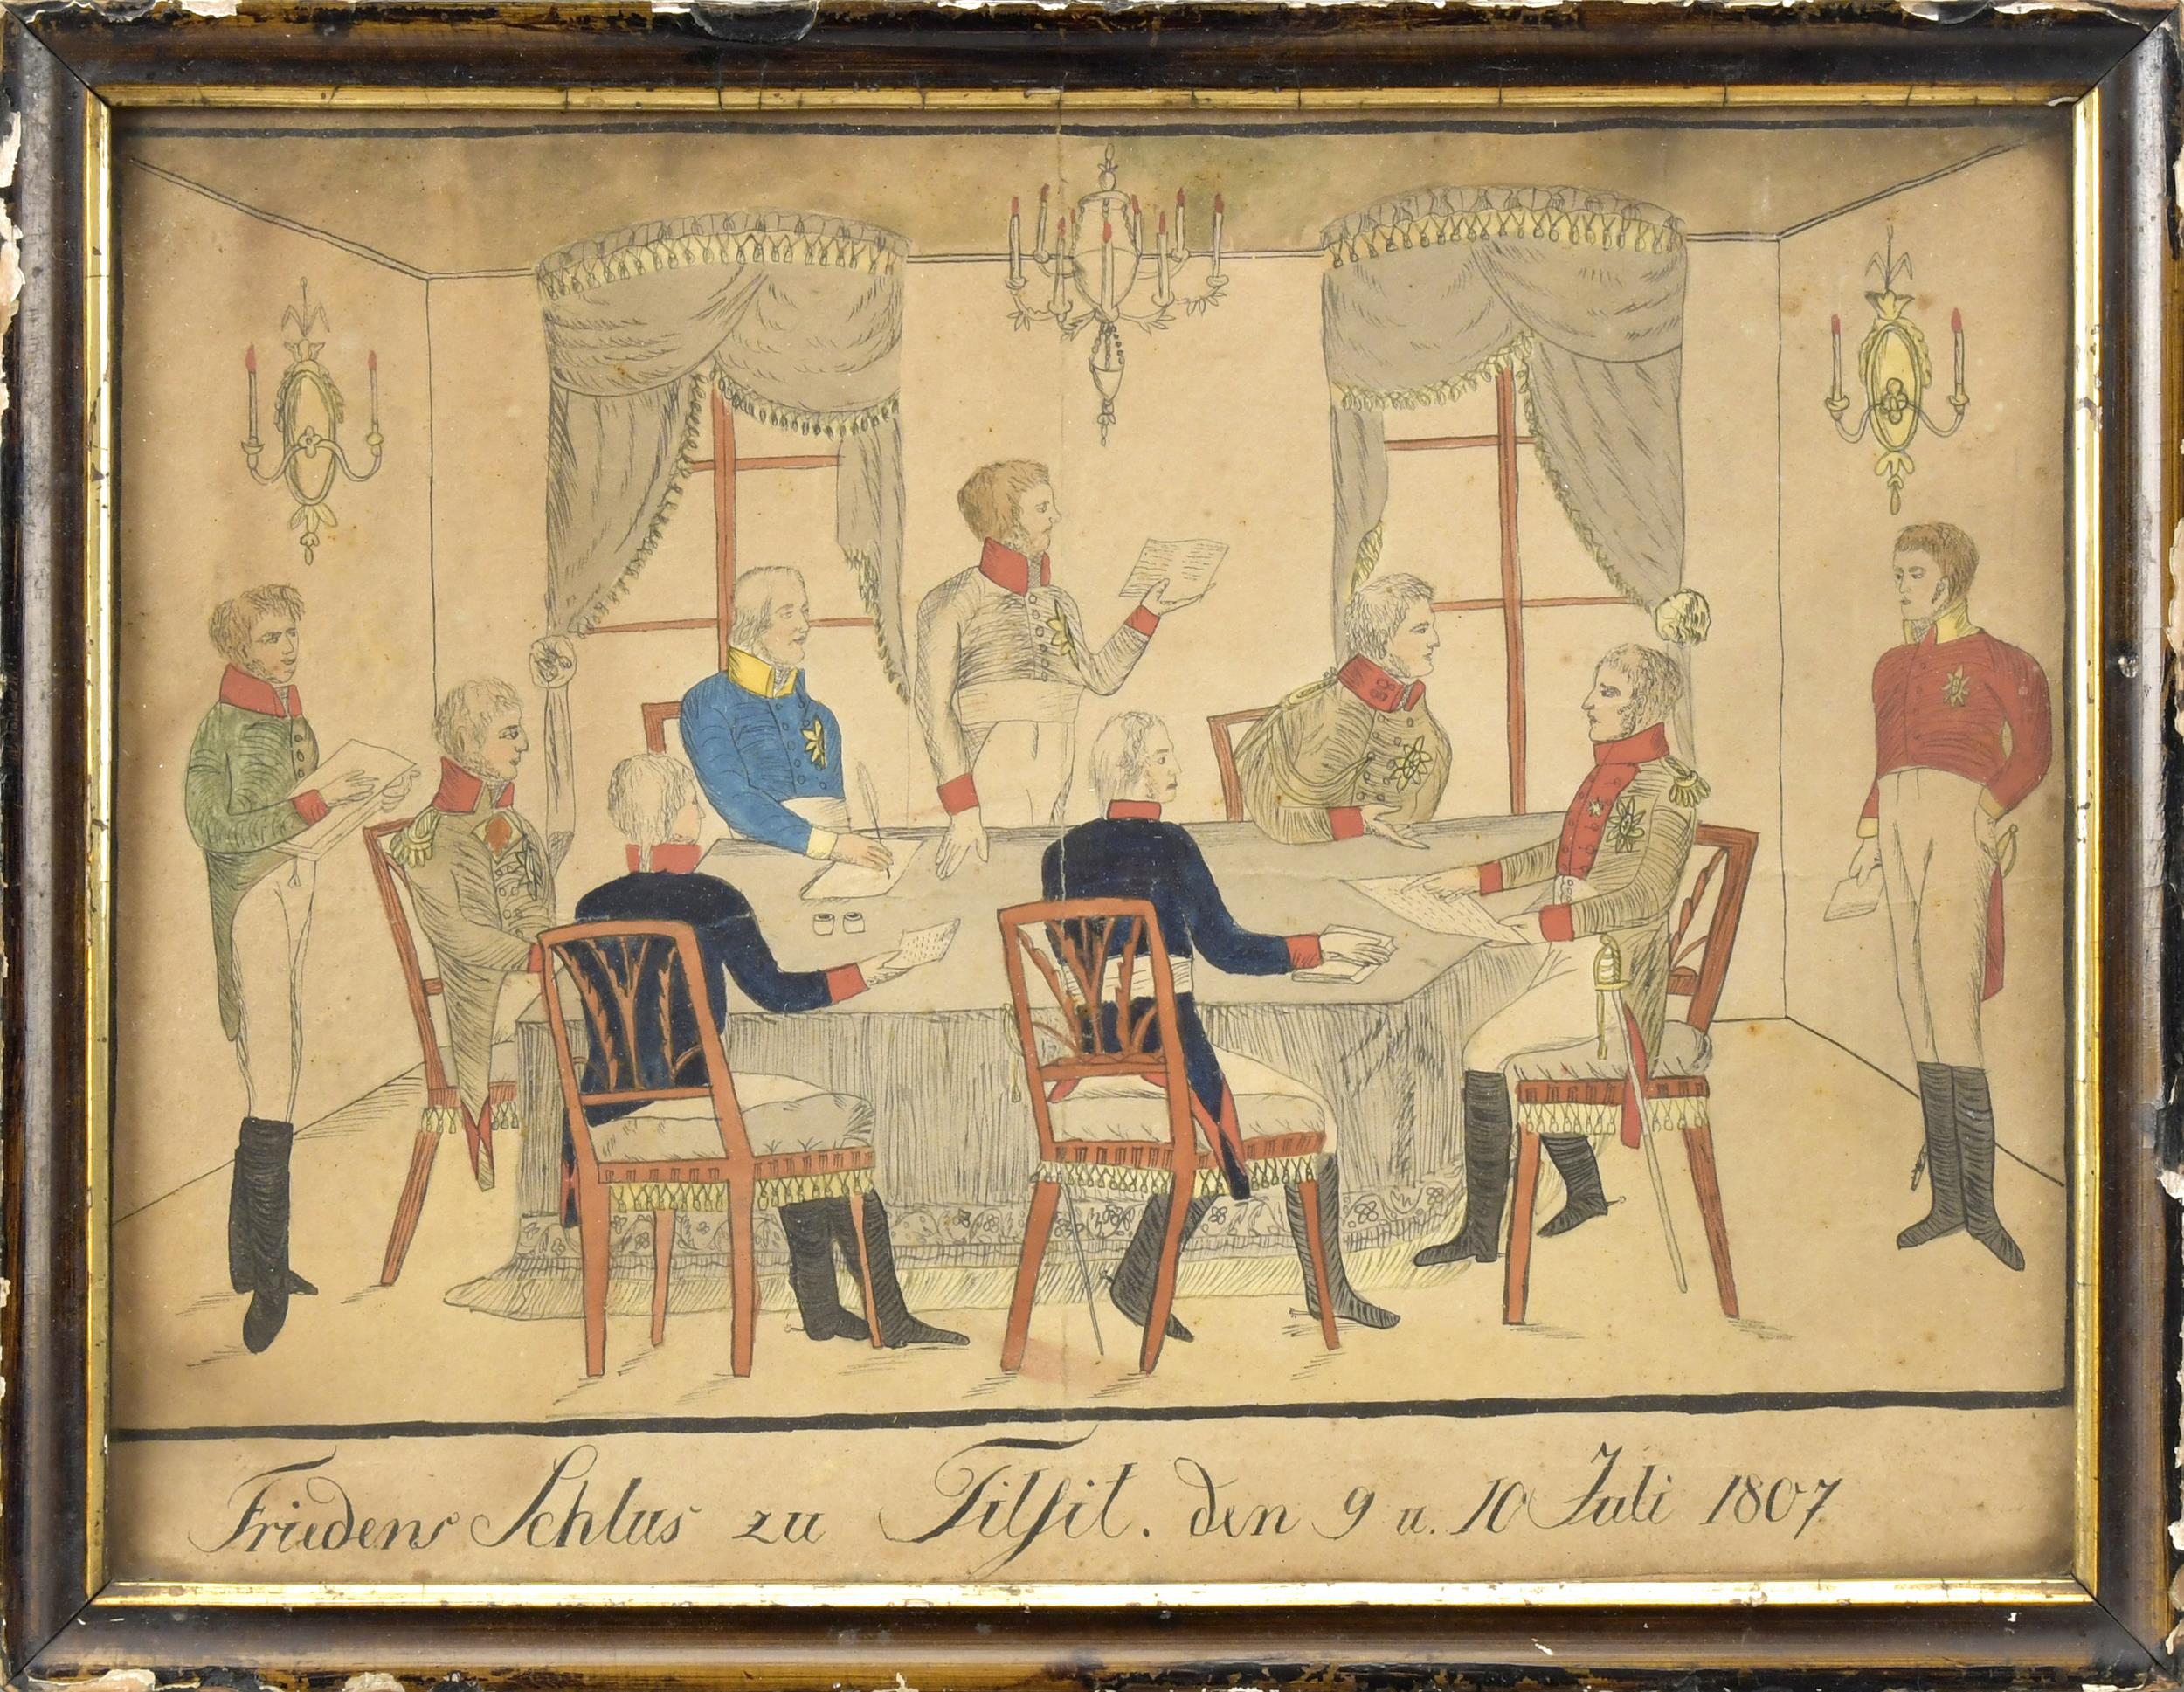 Friedens Schlus zu Tilsit. den 9 u. 10 Juli 1807